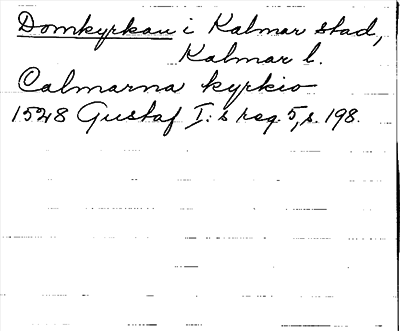 Domkyrkan i Kalmar stad,
Kalmar l.
Calmarna kyrkio
1528 Gustaf I:s reg. 5, s. 198.